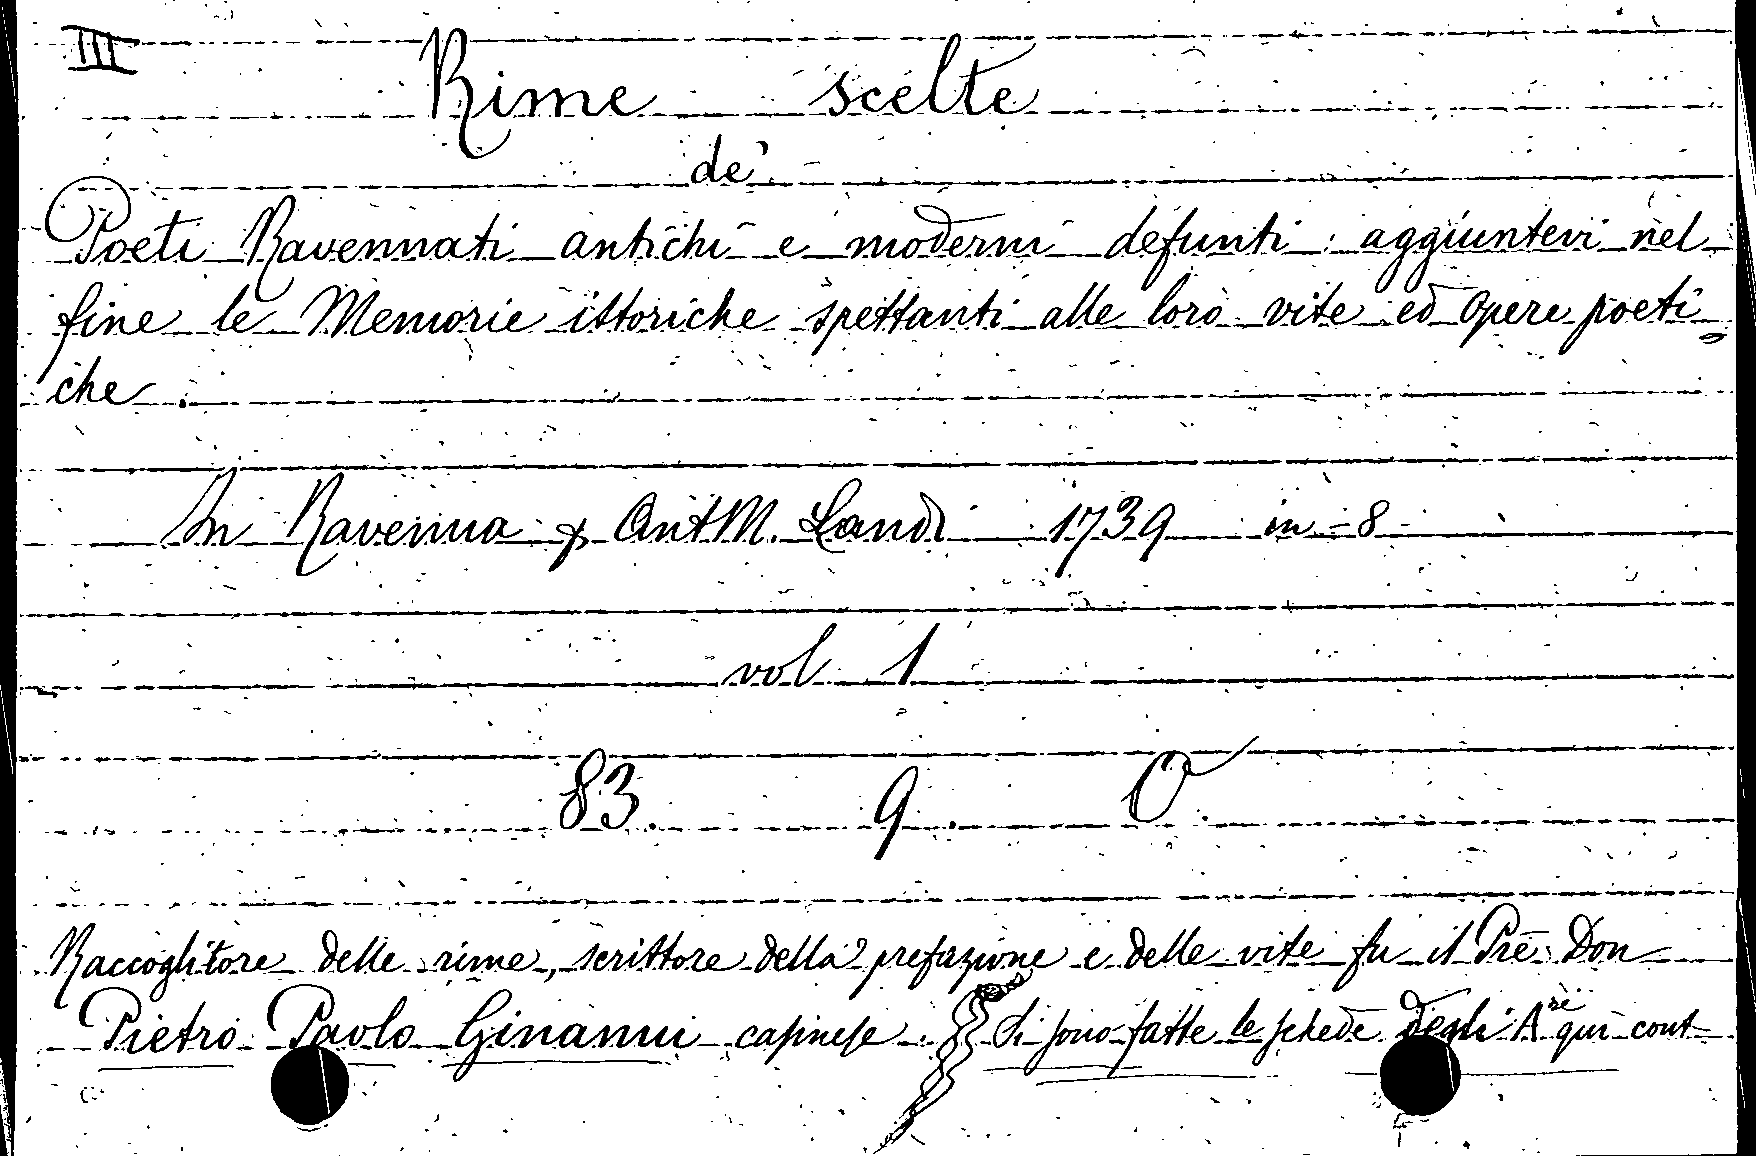 III
Rime scelte
de'
Poeti Ravennati antichi e moderni defunti: aggiuntevi nel
fine le Memorie istoriche spettanti alle loro vite ed opere poeti=
che.
In Ravenna Ant M. Landi 1739 in-8
vol 1
83. 9. O
Raccoglitore delle rime, scrittore della prefazione e delle vite fu il Pre Don
Pietro Paolo Ginanni casinese. Si sono fatte le schede degli A.ri qui cont